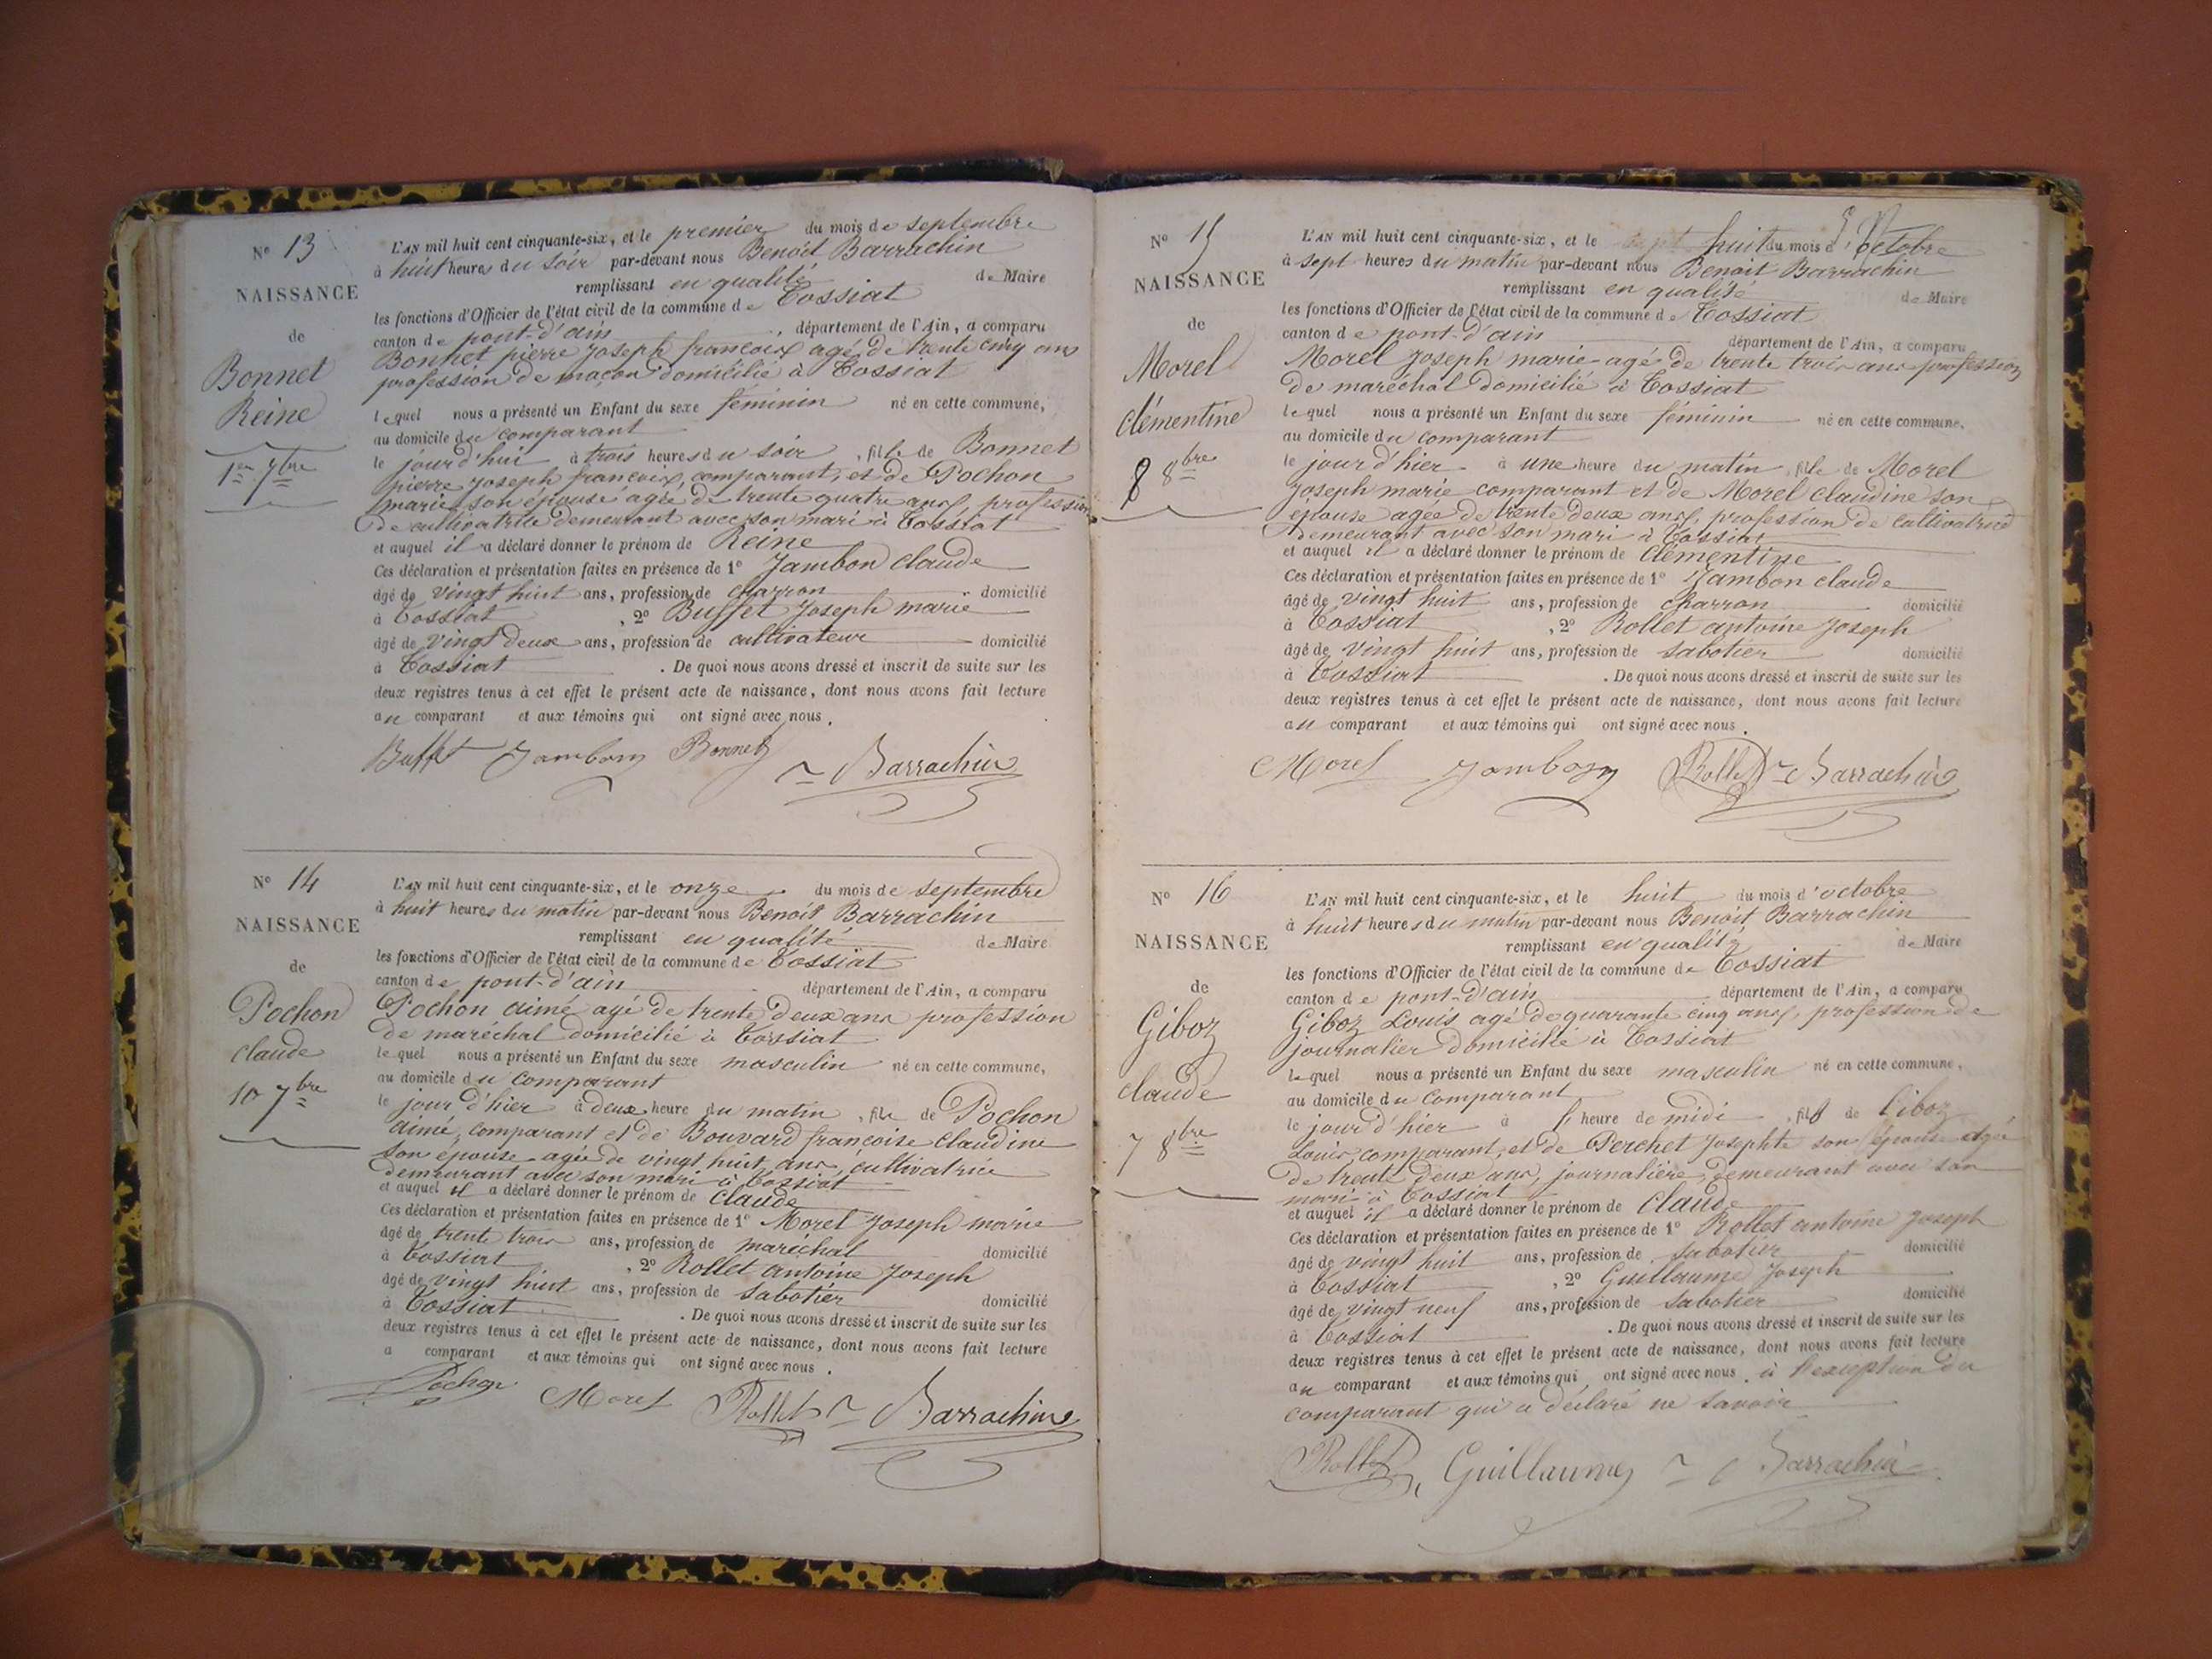 N° 13
NAISSANCE
de
Bonnet
Reine
1er 7bre
L'AN mil huit cent cinquante-six, et le premier du mois de septembre
à huit heures du soir par-devant nous Benoit Barrachin
remplissant en qualité de Maire
les fonctions d'Officier de l'état civil de la commune de Tossiat
canton de pont-d'ain, département de l'Ain, a comparu
Bonnet pierre joseph françois agé de trente cinq ans
profession de maçon domicilié à Tossiat
lequel nous a présenté un Enfant du sexe féminin né en cette commune,
au domicile du comparant
le jour d'hui à trois heures du soir, fille de Bonnet
pierre joseph françois, comparant, et de Pochon
marie son épouse agée de trente quatre ans, profession
de cultivatrice demeurant avec son mari à Tossiat
et auquel il a déclaré donner le prénom de Reine
Ces déclaration et présentation faites en présence de 1° Jambon claude
âgé de vingt huit ans, profession de charron domicilié
à Tossiat, 2° Buffet Joseph marie
âgé de vingt deux ans, profession de cultivateur domicilié
à Tossiat. De quoi nous avons dressé et inscrit de suite sur les
deux registres tenus à cet effet le présent acte de naissance, dont nous avons fait lecture
au comparant et aux témoins qui ont signé avec nous.
Buffet Jambon Bonnet Barrachin
N° 14
NAISSANCE
de
Pochon
claude
10 7bre
L'AN mil huit cent cinquante-six, et le onze du mois de septembre
à huit heures du matin par-devant nous Benoit Barrachin
remplissant en qualité de Maire
les fonctions d'Officier de l'état civil de la commune de Tossiat
canton de pont-d'ain département de l'Ain, a comparu
Pochon aimé agé de trente deux ans profession
de maréchal domicilié à Tossiat
lequel nous a présenté un Enfant du sexe masculin né en cette commune,
au domicile du comparant
le jour d'hier à deux heure du matin, fils de Pochon
aimé, comparant et de Bouvard françoise claudine
son épouse agée de vingt huit ans, cultivatrice
demeurant avec son mari à Tossiat
et auquel il a déclaré donner le prénom de claude
Ces déclaration et présentation faites en présence de 1° Morel Joseph marie
âgé de trente trois ans, profession de maréchal domicilié
à Tossiat, 2° Rollet antoine Joseph
âgé de vingt huit ans, profession de sabotier domicilié
à Tossiat. De quoi nous avons dressé et inscrit de suite sur les
deux registres tenus à cet effet le présent acte de naissance, dont nous avons fait lecture
a comparant et aux témoins qui ont signé avec nous.
Pochon Morel Rollet Barrachin
N° 15
NAISSANCE
de
Morel
clémentine
8 8bre
L'AN mil huit cent cinquante-six, et le huit du mois d'Octobre
à sept heures du matin par-devant nous Benoit Barrachin
remplissant en qualité de Maire
les fonctions d'Officier de l'état civil de la commune de Tossiat
canton de pont-d'ain département de l'Ain, a comparu
Morel Joseph marie agé de trente trois ans profession
de maréchal domicilié à Tossiat
lequel nous a présenté un Enfant du sexe féminin né en cette commune,
au domicile du comparant
le jour d'hier à une heure du matin, fille de Morel
joseph marie comparant et de Morel claudine son
épouse agée de trente deux ans, profession de cultivatrice
demeurant avec son mari à Tossiat
et auquel il a déclaré donner le prénom de clémentine
Ces déclaration et présentation faites en présence de 1° Jambon claude
âgé de vingt huit ans, profession de charron domicilié
à Tossiat, 2° Rollet antoine Joseph
âgé de vingt huit ans, profession de sabotier domicilié
à Tossiat. De quoi nous avons dressé et inscrit de suite sur les
deux registres tenus à cet effet le présent acte de naissance, dont nous avons fait lecture
au comparant et aux témoins qui ont signé avec nous.
Morel Jambon Rollet Barrachin
N° 16
NAISSANCE
de
Giboz
claude
7 8bre
L'AN mil huit cent cinquante-six, et le huit du mois d'octobre
à huit heures du matin par-devant nous Benoit Barrachin
remplissant en qualité de Maire
les fonctions d'Officier de l'état civil de la commune de Tossiat
canton de pont-d'ain département de l'Ain, a comparu
Giboz Louis agé de quarante cinq ans, profession de
journalier domicilié à Tossiat
lequel nous a présenté un Enfant du sexe masculin né en cette commune,
au domicile du comparant
le jour d'hier à heure de midi, fils de Giboz
Louis, comparant, et de Perchet Josephte son épouse agée
de trente deux ans, journalière, demeurant avec son
mari à Tossiat
et auquel il a déclaré donner le prénom de claude
Ces déclaration et présentation faites en présence de 1° Rollet antoine Joseph
âgé de vingt huit ans, profession de sabotier domicilié
à Tossiat, 2° Guillaume Joseph
âgé de vingt neuf ans, profession de sabotier domicilié
à Tossiat. De quoi nous avons dressé et inscrit de suite sur les
deux registres tenus à cet effet le présent acte de naissance, dont nous avons fait lecture
au comparant et aux témoins qui ont signé avec nous. à l'exception du
comparant qui a déclaré ne savoir
Rollet Guillaume Barrachin